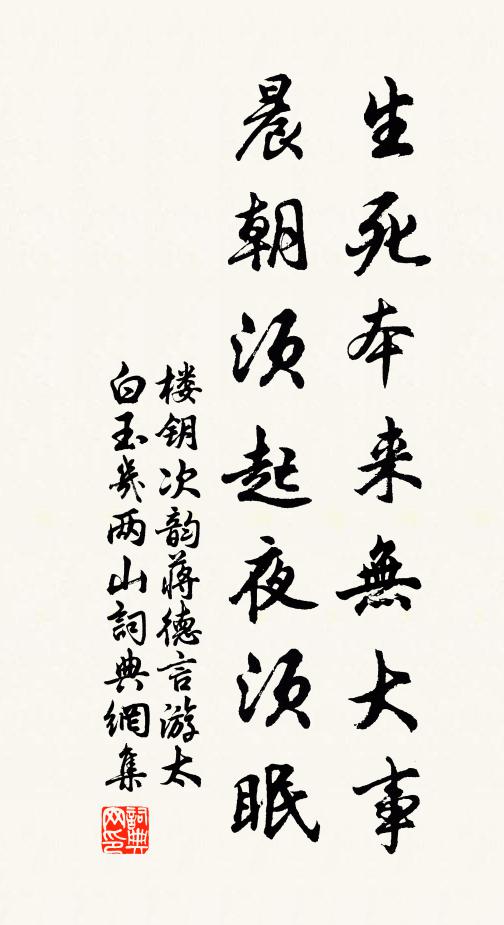 生死本来無大事
晨朝须起夜须眠
楼钥次韵蒋德言游太
白玉几两山詞典網集
詞典網印